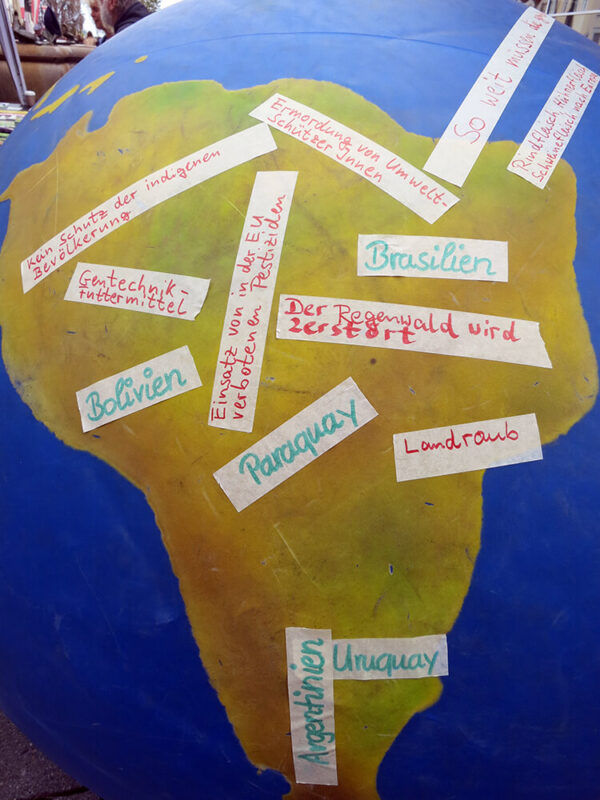 So weit müssen
Rindfleisch, Hühnerfleisch
Schweinefleisch nach Europa
Ermordung von Umwelt-
Schützer Innen
Kein Schutz der indigenen
Bevölkerung
Einsatz von in der EU
verbotenen Pestiziden
Brasilien
Gentechnik-
futtermittel
Der Regenwald wird
zerstört
Bolivien
Paraquay
Landraub
Argentinien
Uruquay